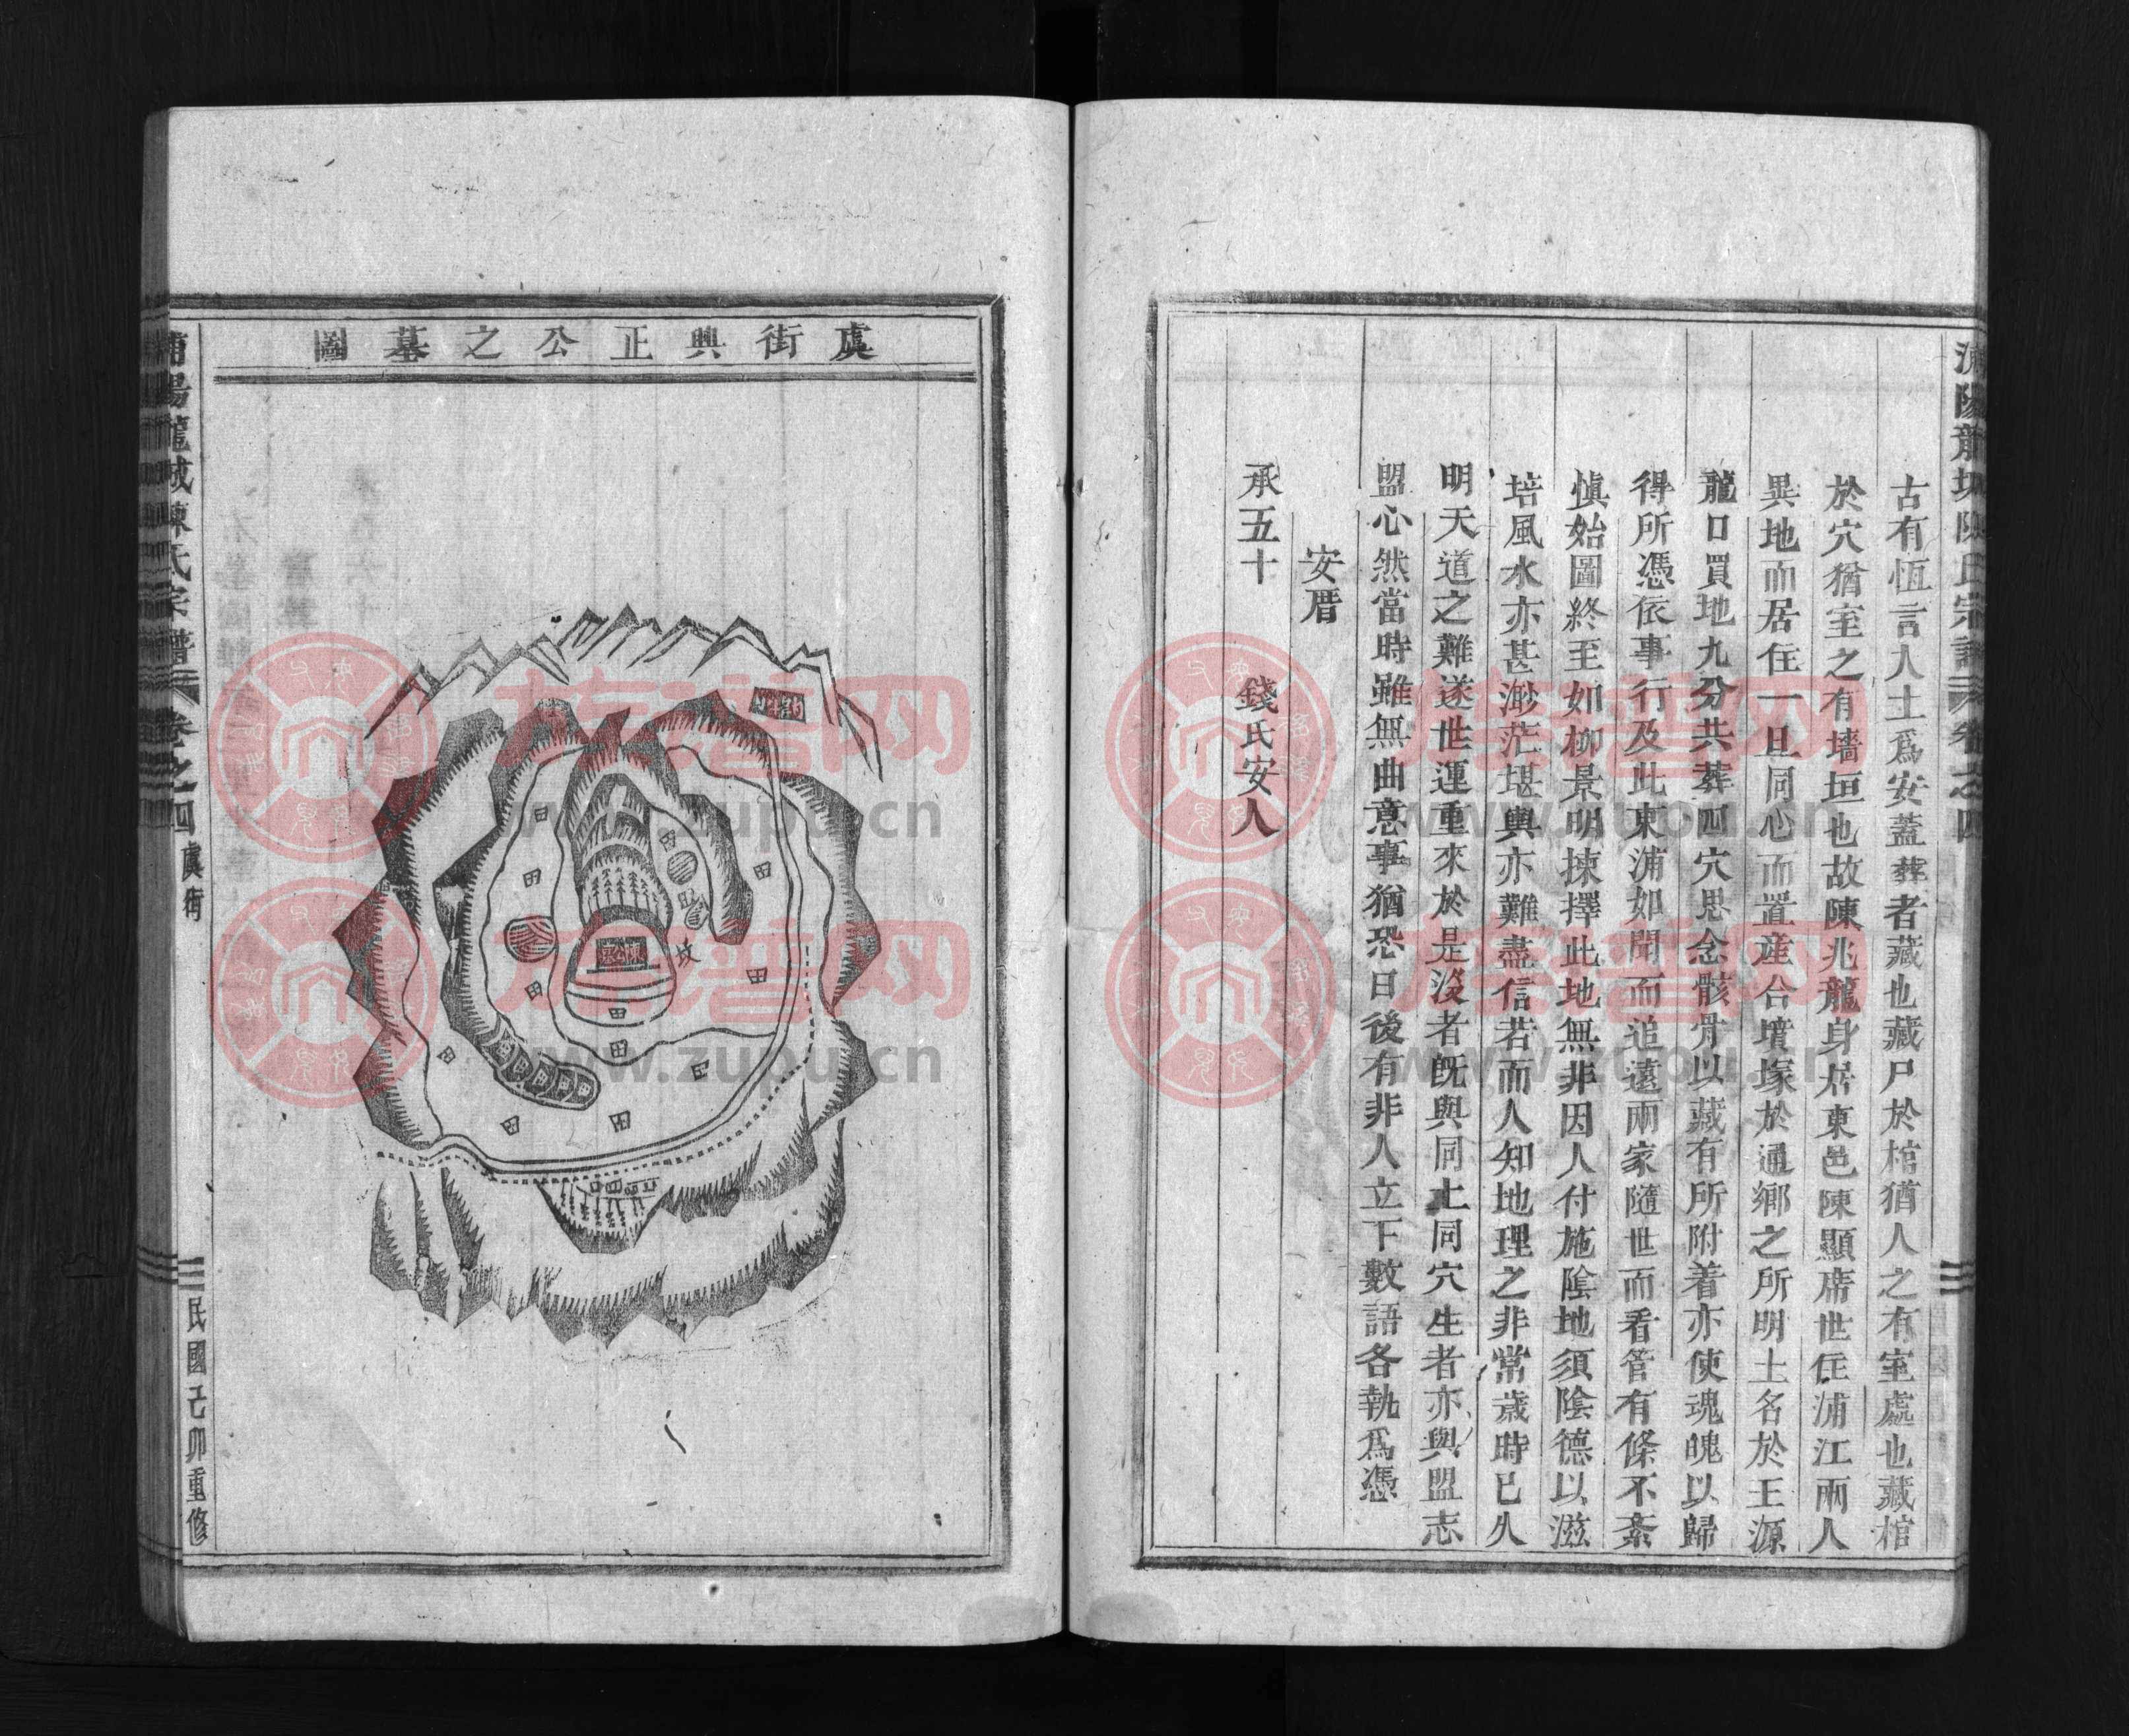 浦陽龍城陳氏宗譜 卷之四
古有恆言入土爲安蓋葬者藏也藏尸於棺猶人之有室處也藏棺
於穴猶室之有墻垣也故陳兆龍身居東邑陳顯席世住浦江兩人
異地而居住一旦同心而置產合墳塚於通鄉之所明土名於王源
龍口買地九分共葬四穴思念骸骨以藏有所附着亦使魂魄以歸
得所憑依事行及此東浦如聞而追遠兩家隨世而看管有條不紊
慎始圖終至如柳景明揀擇此地無非因人付施陰地須陰德以滋
培風水亦甚渺茫堪輿亦難盡信若而人知地理之非常歲時已久
明天道之難遂世運重來於是沒者旣與同土同穴生者亦與盟志
盟心然當時雖無曲意事猶恐日後有非人立下數語各執爲憑
安厝
承五十 錢氏安人
虞街興正公之墓圖
田
田
田
田
田
田
田
田
田
田
田
田
坟
浦陽龍城陳氏宗譜 卷之四 虞街 民國己卯重修
族谱网
www.zupu.cn
族谱网
www.zupu.cn
族谱网
www.zupu.cn
族谱网
www.zupu.cn